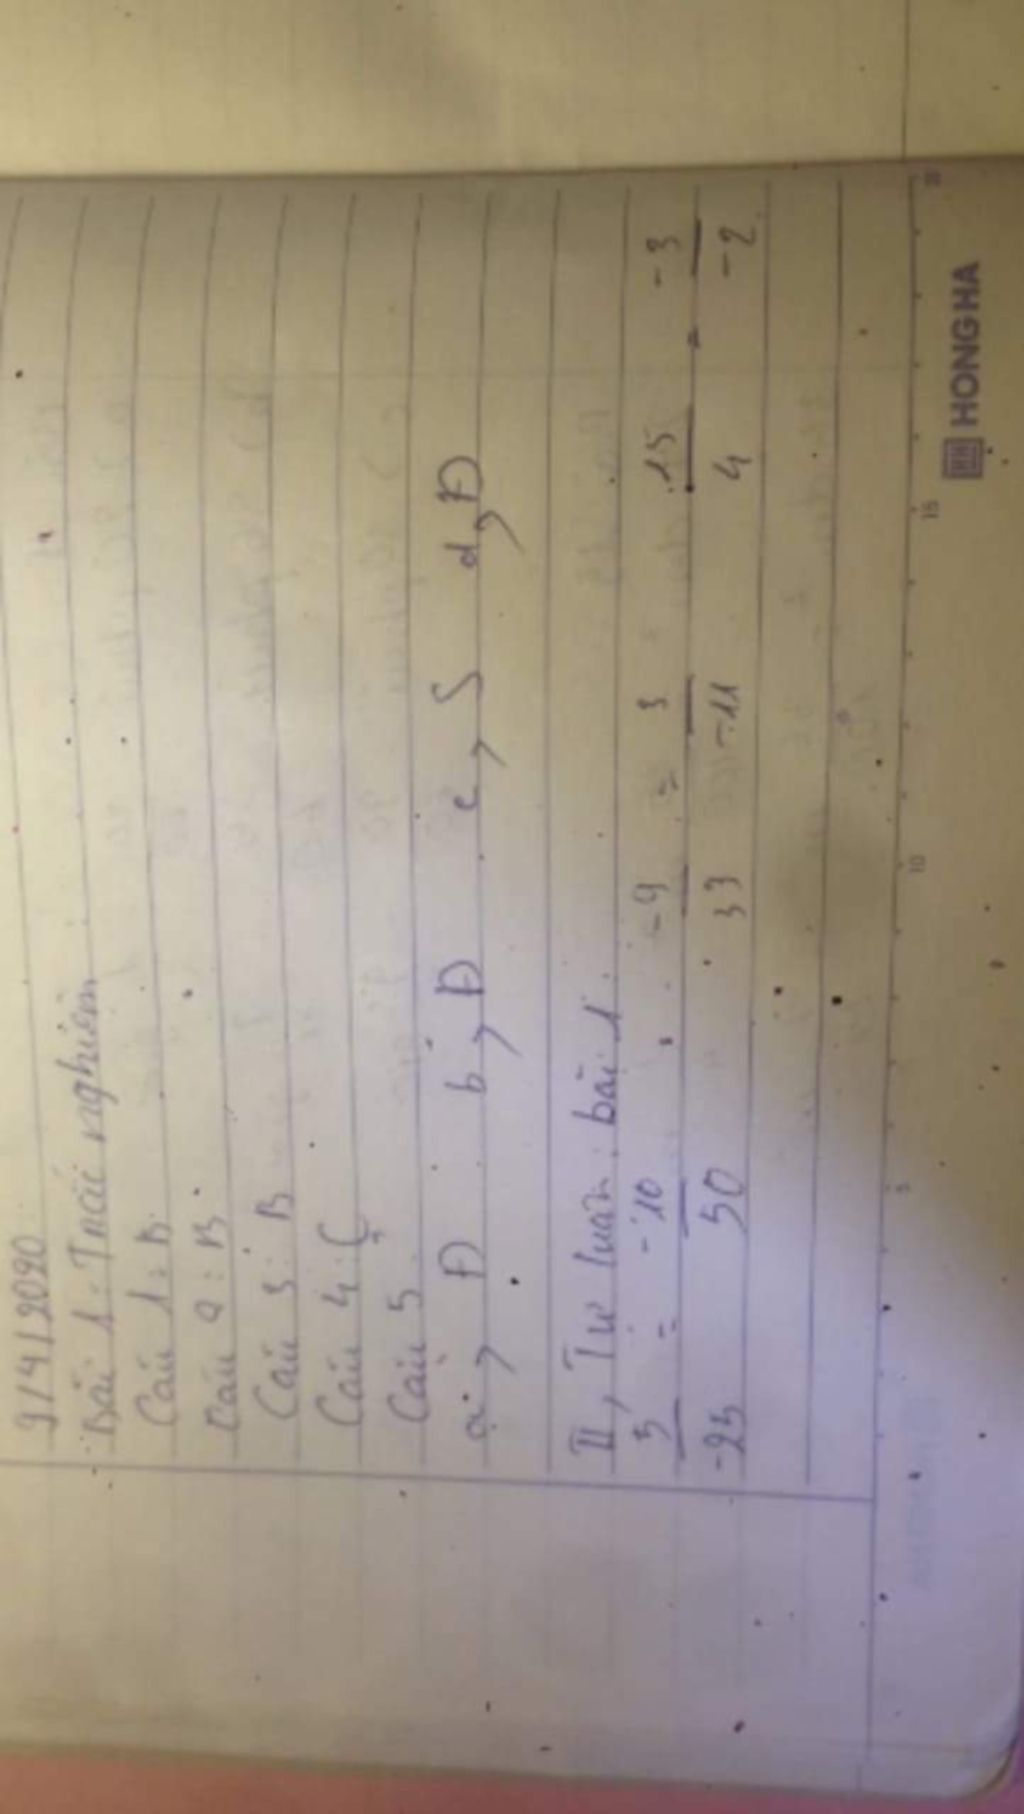 9/4/2020
Bài 1: Trắc nghiệm
Câu 1: B
Câu 2: B
Câu 3: B
Câu 4: C
Câu 5
a, Đ b, Đ c, S d, Đ
II, Tự luận: bài 1
5/-25 = -10/50 -9/33 = 3/-11 15/4 = -3/-2
5 10 15 20
HH HONG HA